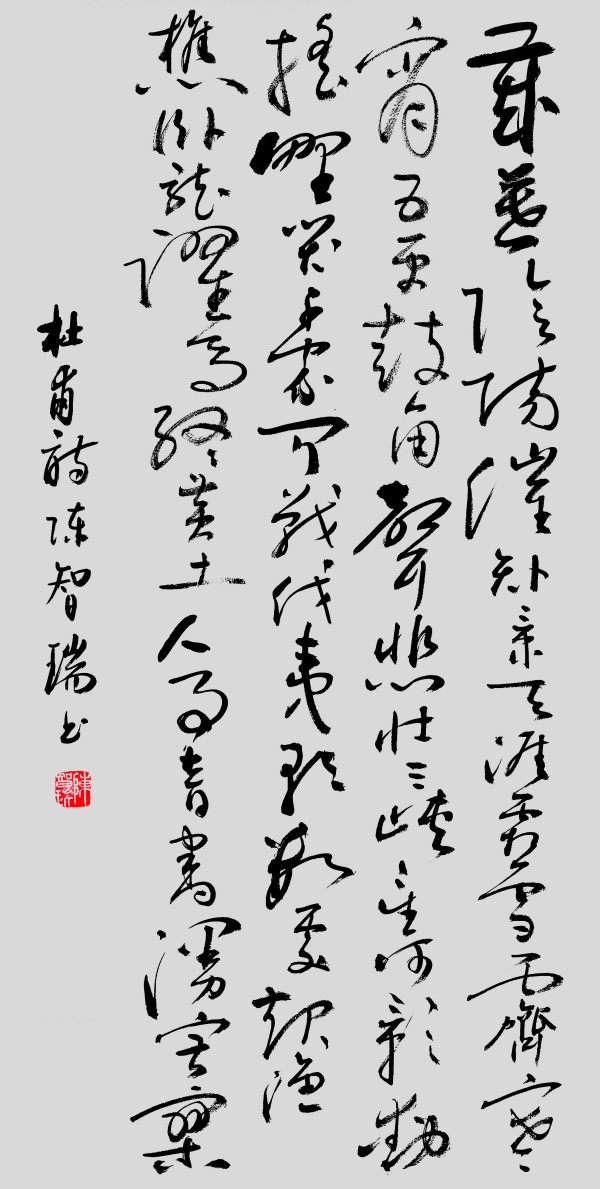 歲暮陰陽催短景天涯霜雪霽寒
宵五更鼓角聲悲壯三峽星河影動
搖野哭千家聞戰伐夷歌數處起漁
樵臥龍躍馬終黃土人事音書漫寂寥
杜甫詩陳智瑞书